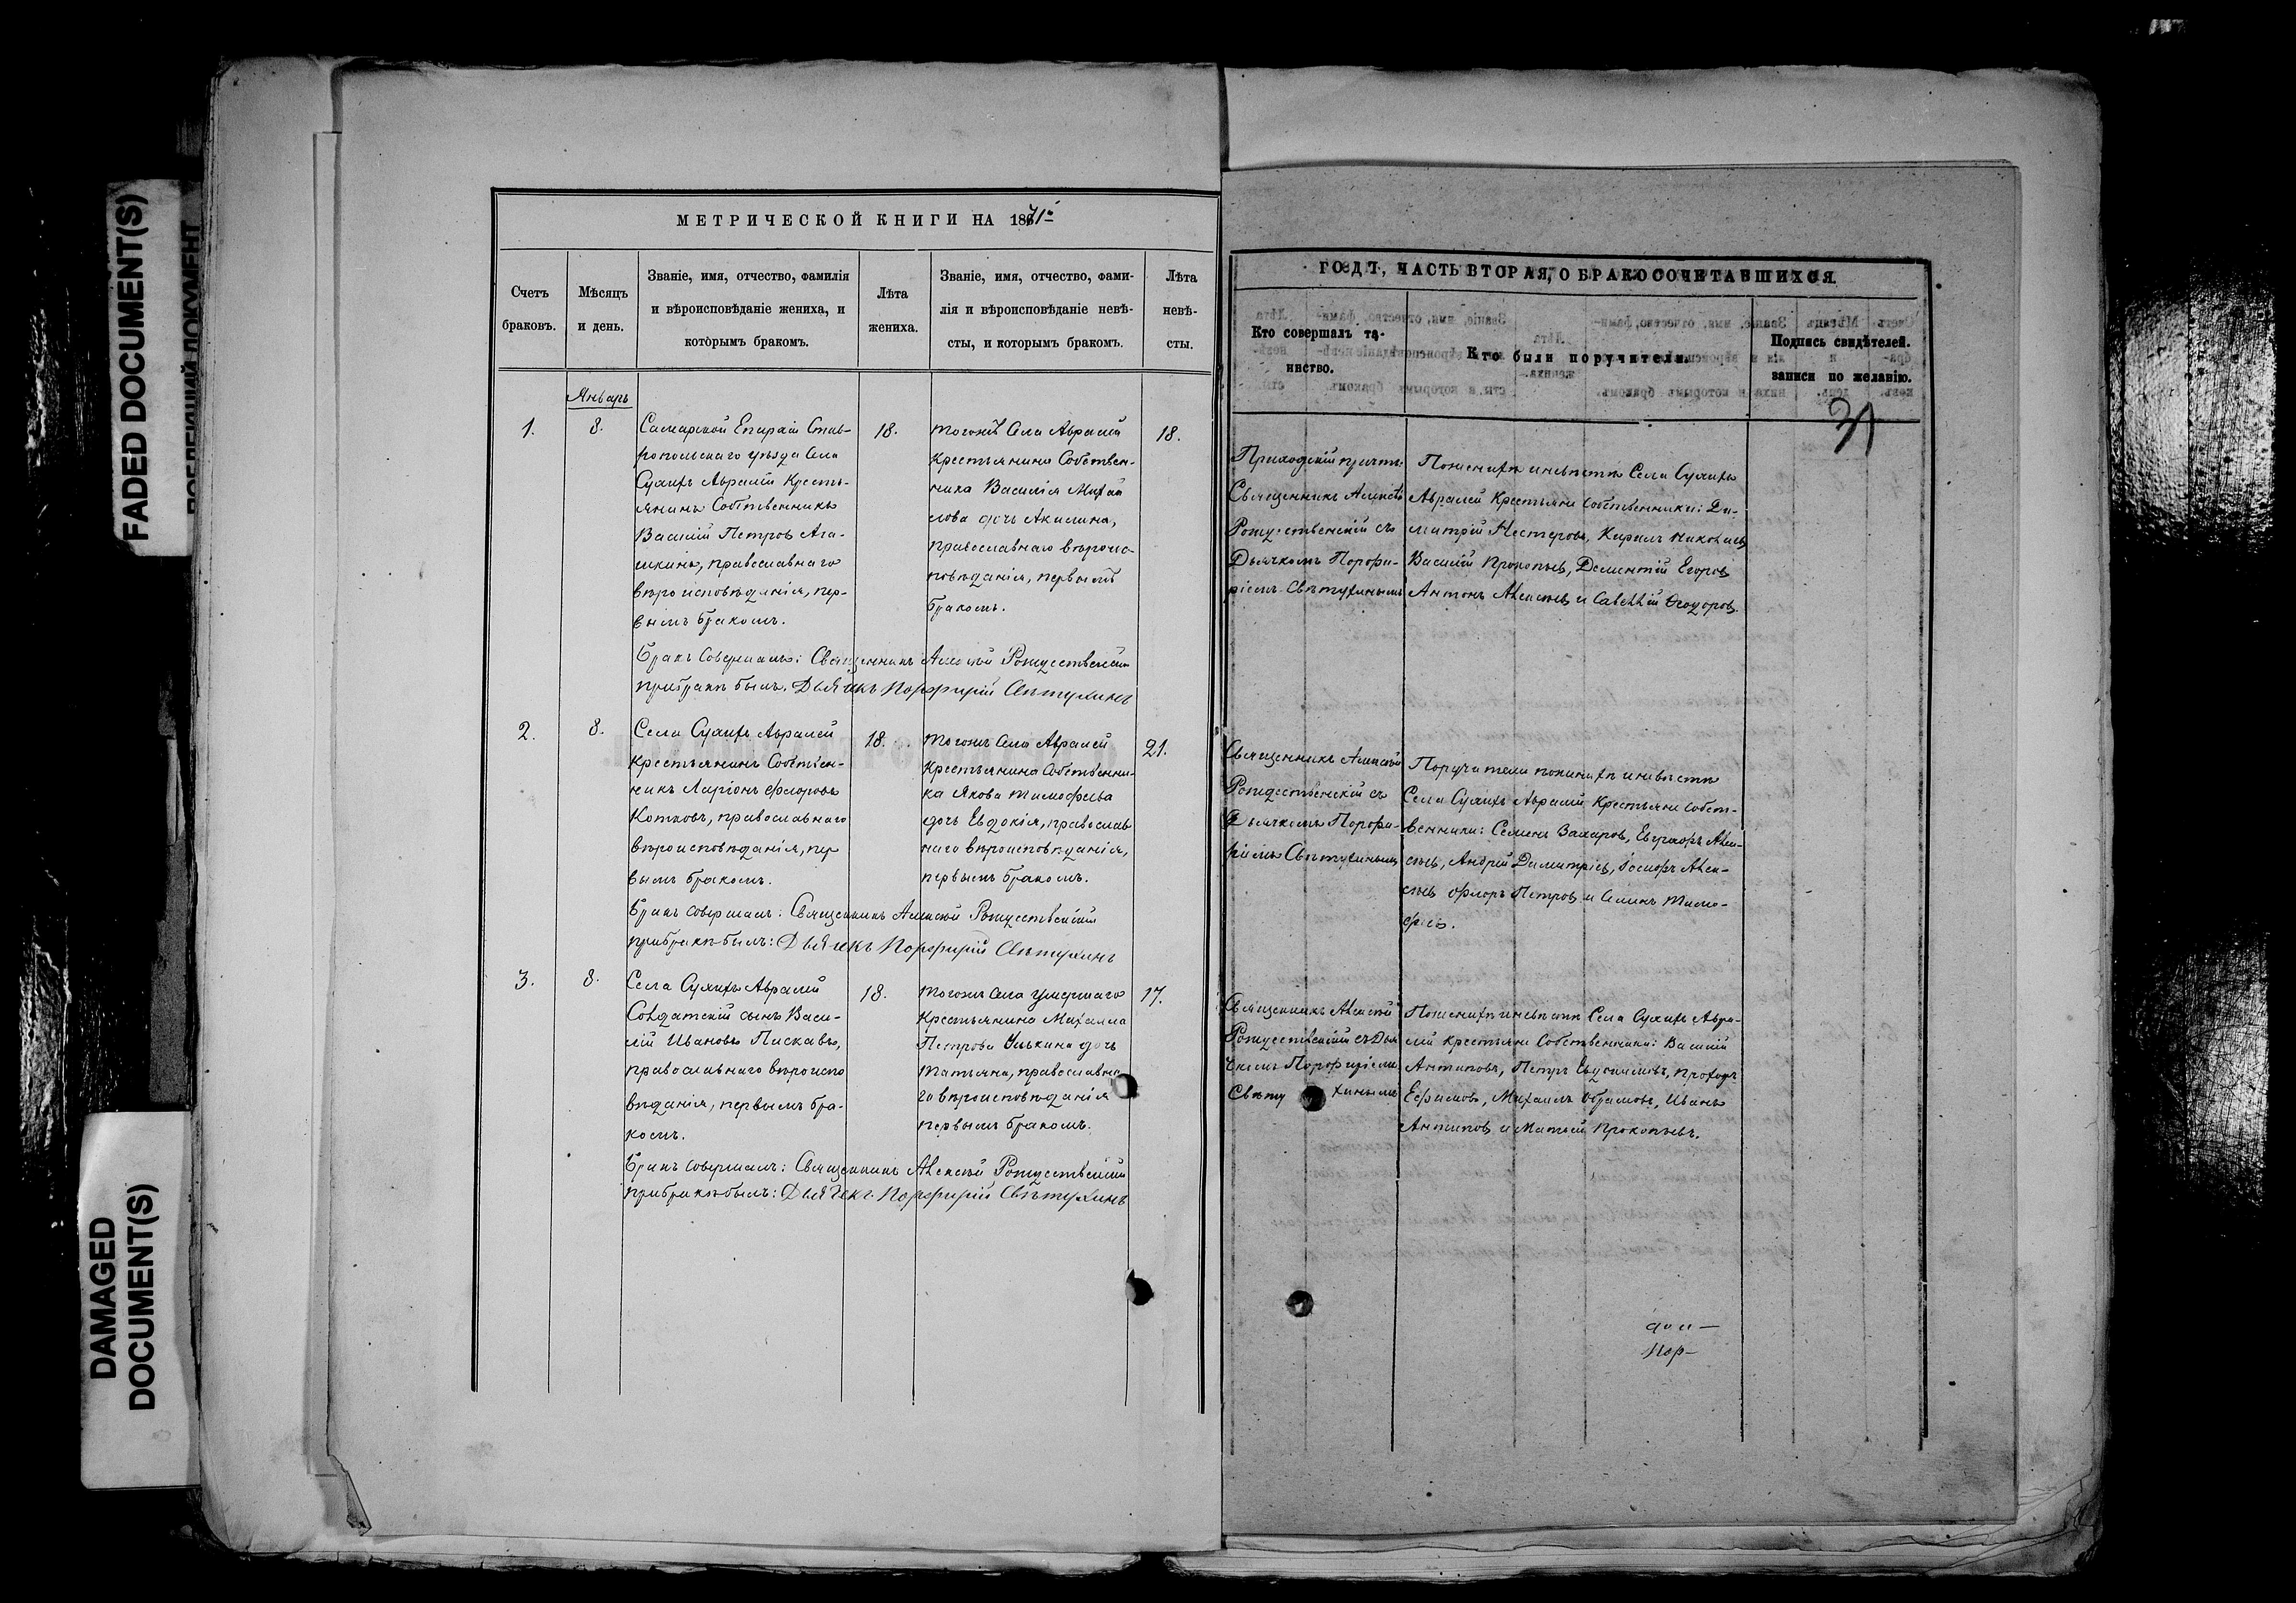 FADED DOCUMENT(S)
DAMAGED
DOCUMENT(S)
МЕТРИЧЕСКОЙ КНИГИ НА 1871
Счетъ
браковъ.
Мѣсяцъ
и день.
Званіе, имя, отчество, фамилія
и вѣроисповѣданіе жениха, и
которымъ бракомъ.
Лѣта
жениха.
Званіе, имя, отчество, фами-
лія и вѣроисповѣданіе невѣ-
сты, и которымъ бракомъ.
Лѣта
невѣ-
сты.
Январь
1.
8.
Самарской Епархіи Став-
ропольскаго уѣзда села
Сухихъ Авралей Кресть-
янинъ Собственникъ
Василій Петровъ Ага-
шкинъ, православнаго
вѣроисповѣданія, пер-
вымъ бракомъ.
18.
тогожъ села Авралей
Крестьянина Собствен-
ника Василія Михай
лова дочь Акилина,
православнаго вѣроис-
повѣданія, первымъ
бракомъ.
18.
Бракъ совершалъ: Священникъ Алексѣй Рождественскій
при бракѣ былъ: Дьячекъ Порфирій Свѣтухинъ
2.
8.
Села Сухихъ Авралей
крестьянинъ Собствен-
никъ Ларіонъ Флоровъ
Котковъ, православнаго
вѣроисповѣданія, пер
вымъ бракомъ.
18.
тогожъ села Авралей
Крестьянина Собственни-
ка Якова Тимофеева
дочь Евдокія, православ
наго вѣроисповѣданія,
первымъ бракомъ.
21.
Бракъ совершалъ: Священникъ Алексѣй Рождественскій
при бракѣ былъ: Дьячекъ Порфирій Свѣтухинъ
3.
8.
Села Сухихъ Авралей
Солдатскій сынъ Васи-
лій Ивановъ Пискавъ,
православнаго вѣроиспо
вѣданія, первымъ бра-
комъ.
18.
тогожъ села умершаго
Крестьянина Михаила
Петрова дочь
Татьяна, православна
го вѣроисповѣданія
первымъ бракомъ.
17.
Бракъ совершалъ: Священникъ Алексѣй Рождественскій
при бракѣ былъ: Дьячекъ Порфирій Свѣтухинъ
ГОДЪ, ЧАСТЬ ВТОРАЯ, О БРАКОСОЧЕТАВШИХСЯ.
Кто совершалъ та-
инство.
Кто были поручители.
Подпись свидѣтелей.
записи по желанію.
31
Приходскій причтъ:
Священникъ Алексѣй
Рождественскій съ
Дьячкомъ Порфи-
ріемъ Свѣтухинымъ
По женихѣ и невѣстѣ Села Сухихъ
Авралей Крестьяне собственники: Ди-
митрій Нестеровъ, Кирилъ Николаевъ
Василій Прокопьевъ, Дементій Егоровъ
Антонъ Алексѣевъ и Савелій Ѳеодоровъ.
Священникъ Алексѣй
Рождественскій съ
Дьячкомъ Порфи-
ріемъ Свѣтухинымъ
Поручители по женихѣ и невѣстѣ
Села Сухихъ Авралей Крестьяне собст-
венники: Семенъ Захаровъ, Евграфъ Алек-
сѣевъ, Андрей Димитріевъ, Іосифъ Алек-
сѣевъ Флоръ Петровъ и Тимо-
феевъ.
Священникъ Алексѣй
Рождественскій съ Дья
чкомъ Порфиріемъ
Свѣту хинымъ
По женихѣ и невѣстѣ Села Сухихъ Авра-
лей крестьяне Собственники: Василій
Антиповъ, Петръ Прохоръ
Ефимовъ, Михаилъ Абрамовъ, Иванъ
Антиповъ и Матвей Прокопьевъ.